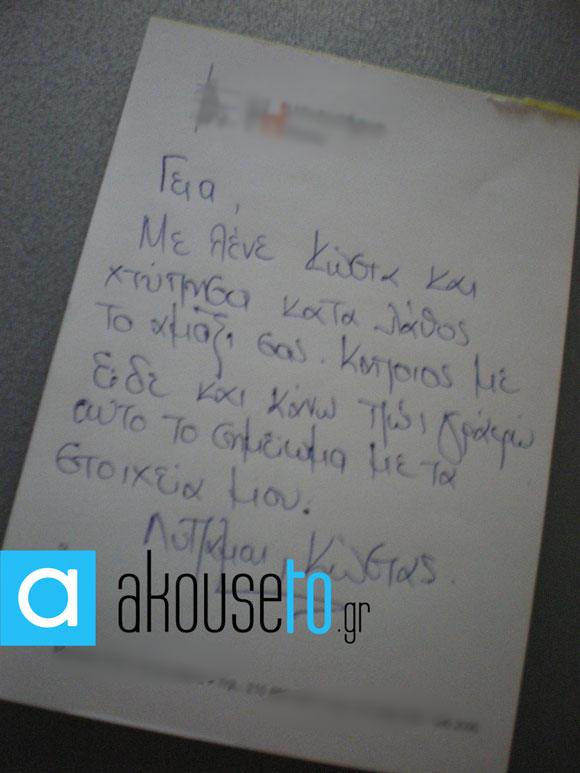 Γεια,
Με λένε Κώστα και
χτύπησα κατα λάθος
το αμάξι σας. Κάποιος με
είδε και κάνω πώς γράφω
αυτο το σημείωμα με τα
στοιχεία μου.
Λυπάμαι, Κώστας.
a akouseto.gr